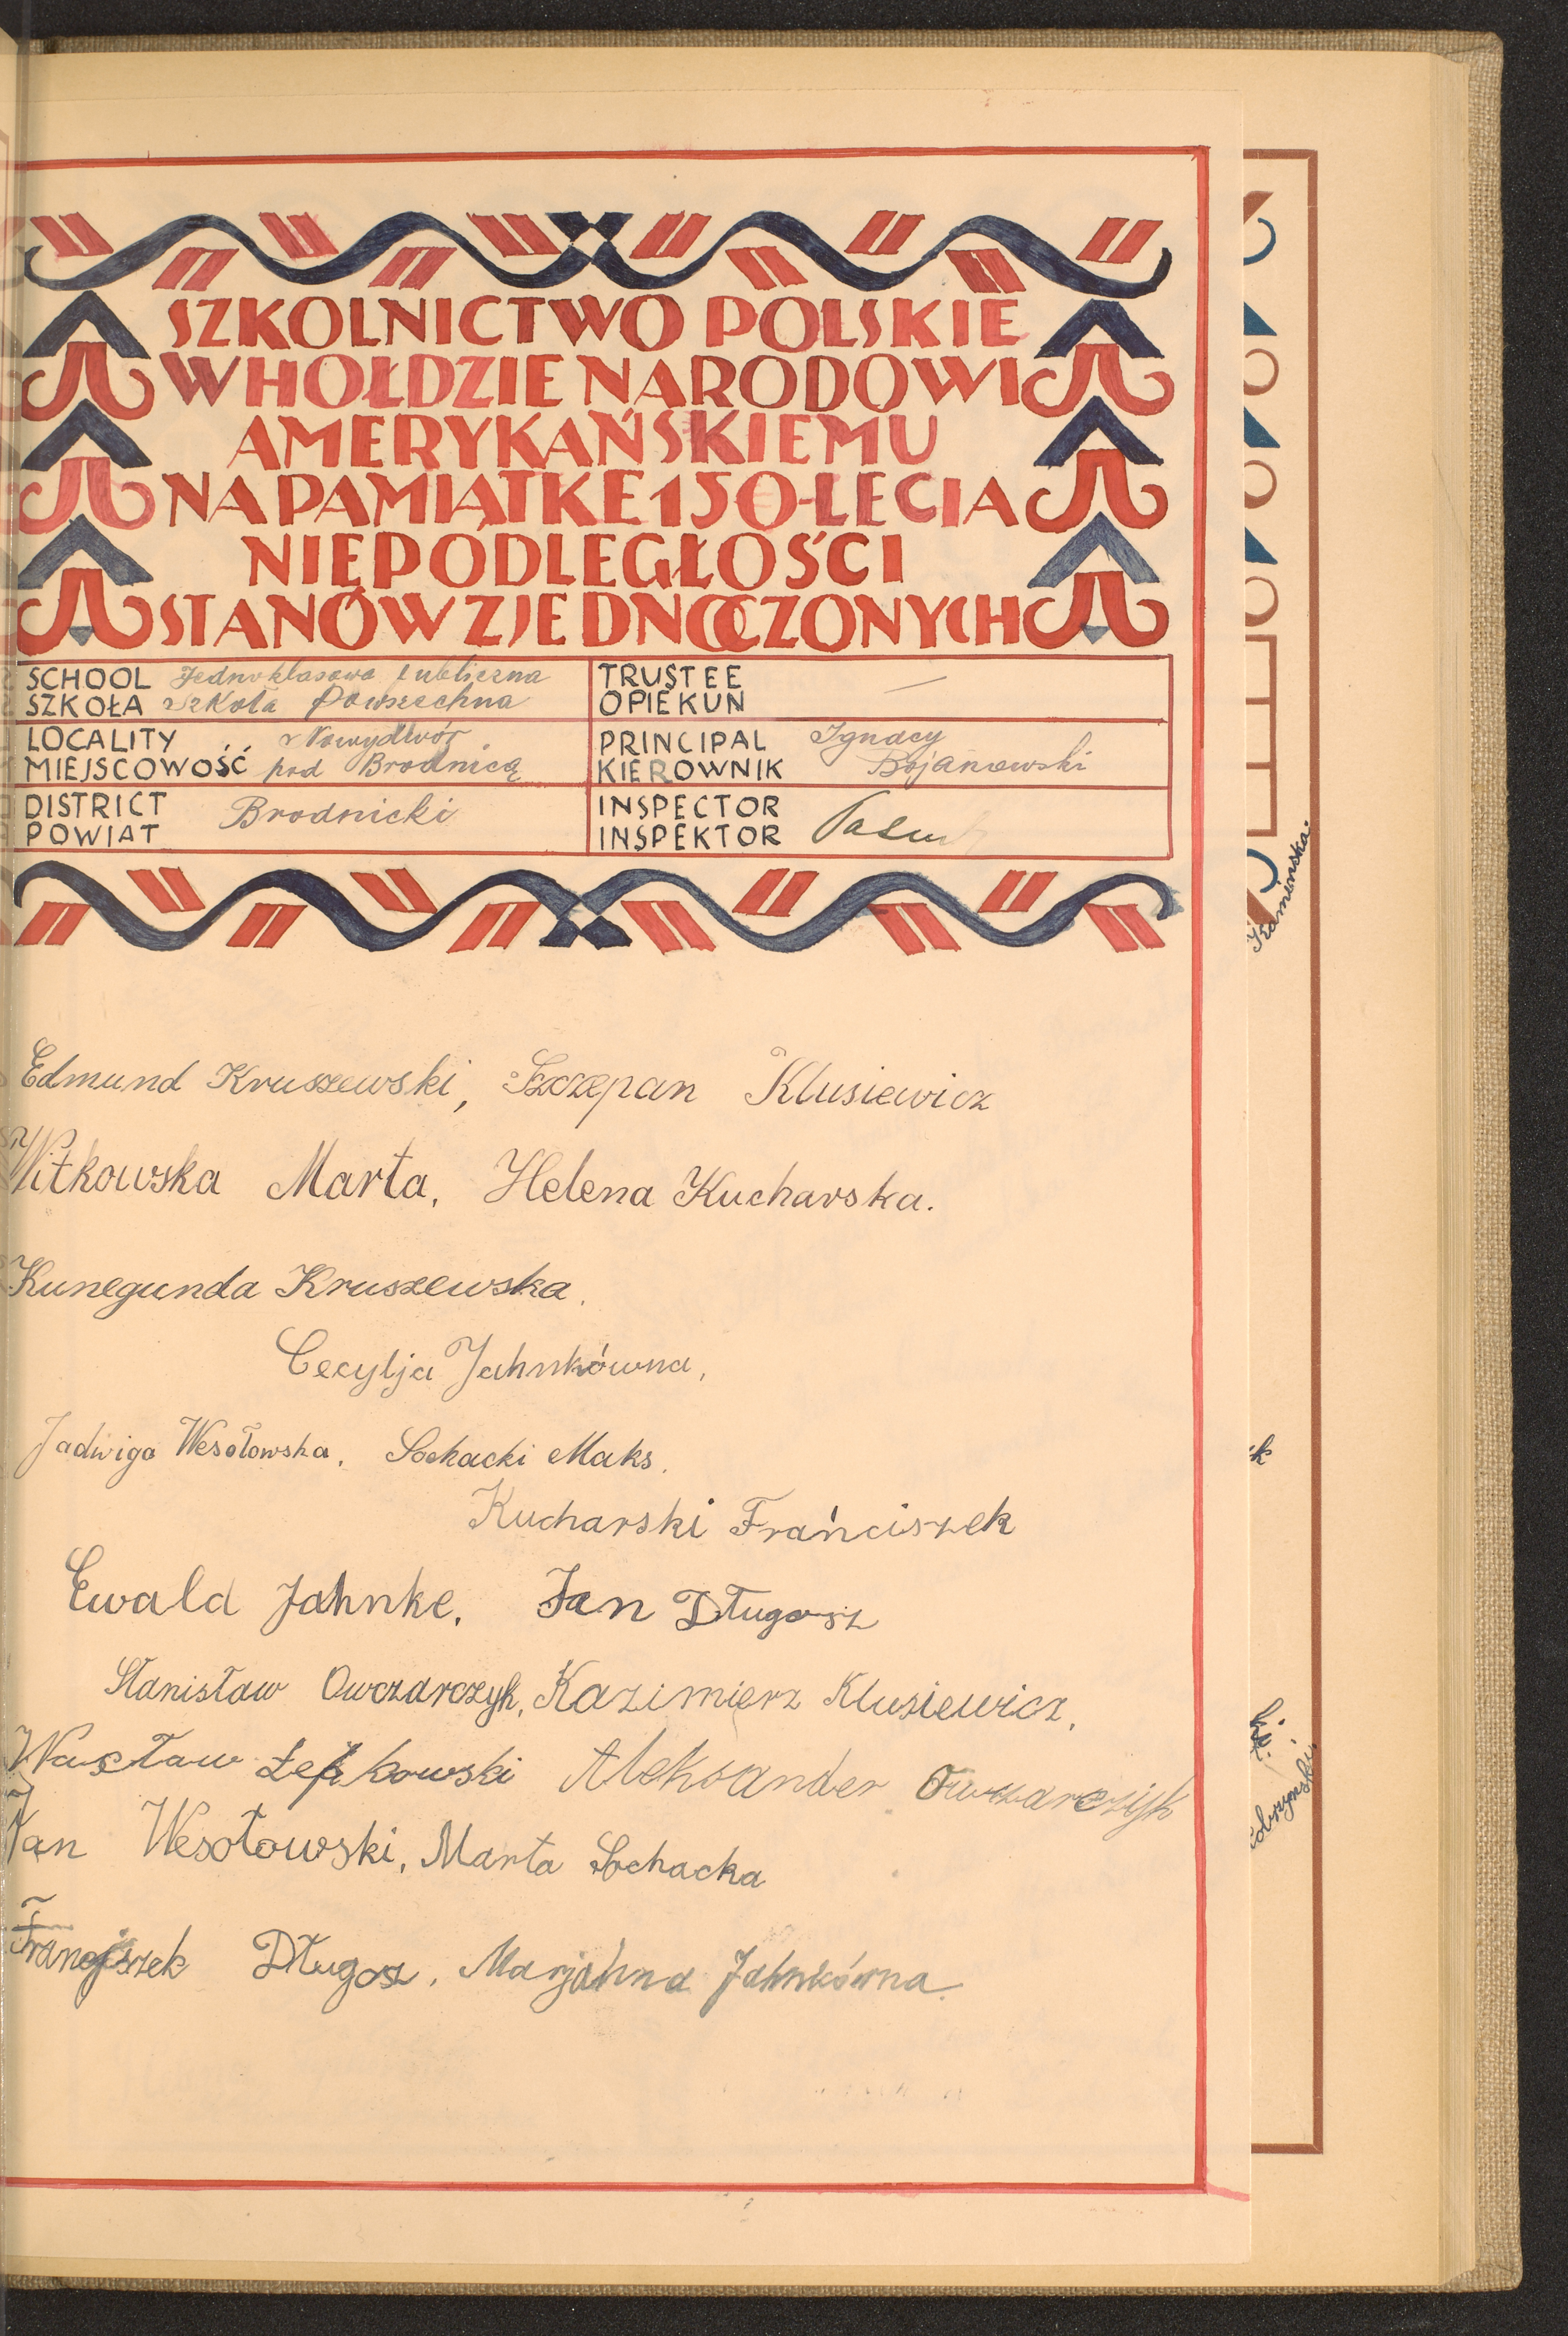 SZKOLNICTWO POLSKIE
W HOŁDZIE NARODOWI
AMERYKAŃSKIEMU
NA PAMIĄTKE 150-LECIA
NIEPODLEGŁOŚCI
STANÓW ZJEDNOCZONYCH
SCHOOL Jednoklasowa Publiczna
SZKOŁA Szkoła Powszechna
TRUSTEE
OPIEKUN —
LOCALITY Nowydwór
MIEJSCOWOŚĆ pod Brodnicą
PRINCIPAL Ignacy
KIEROWNIK Bojanowski
DISTRICT
POWIAT Brodnicki
INSPECTOR
INSPEKTOR
Edmund Kruszewski, Szczepan Klusiewicz
Witkowska Marta, Helena Kucharska.
Kunegunda Kruszewska.
Cecylja Jahnkówna,
Jadwiga Wesołowska, Sochacki Maks.
Kucharski Frańciszek
Ewald Jahnke, Jan Długosz
Stanisław Owczarczyk, Kazimierz Klusiewicz,
Wacław Aleksander Owczarczyk
Jan Wesołowski, Marta Sochacka
Franciszek Długosz, Marjanna Jahnkówna.
Kamieńska.